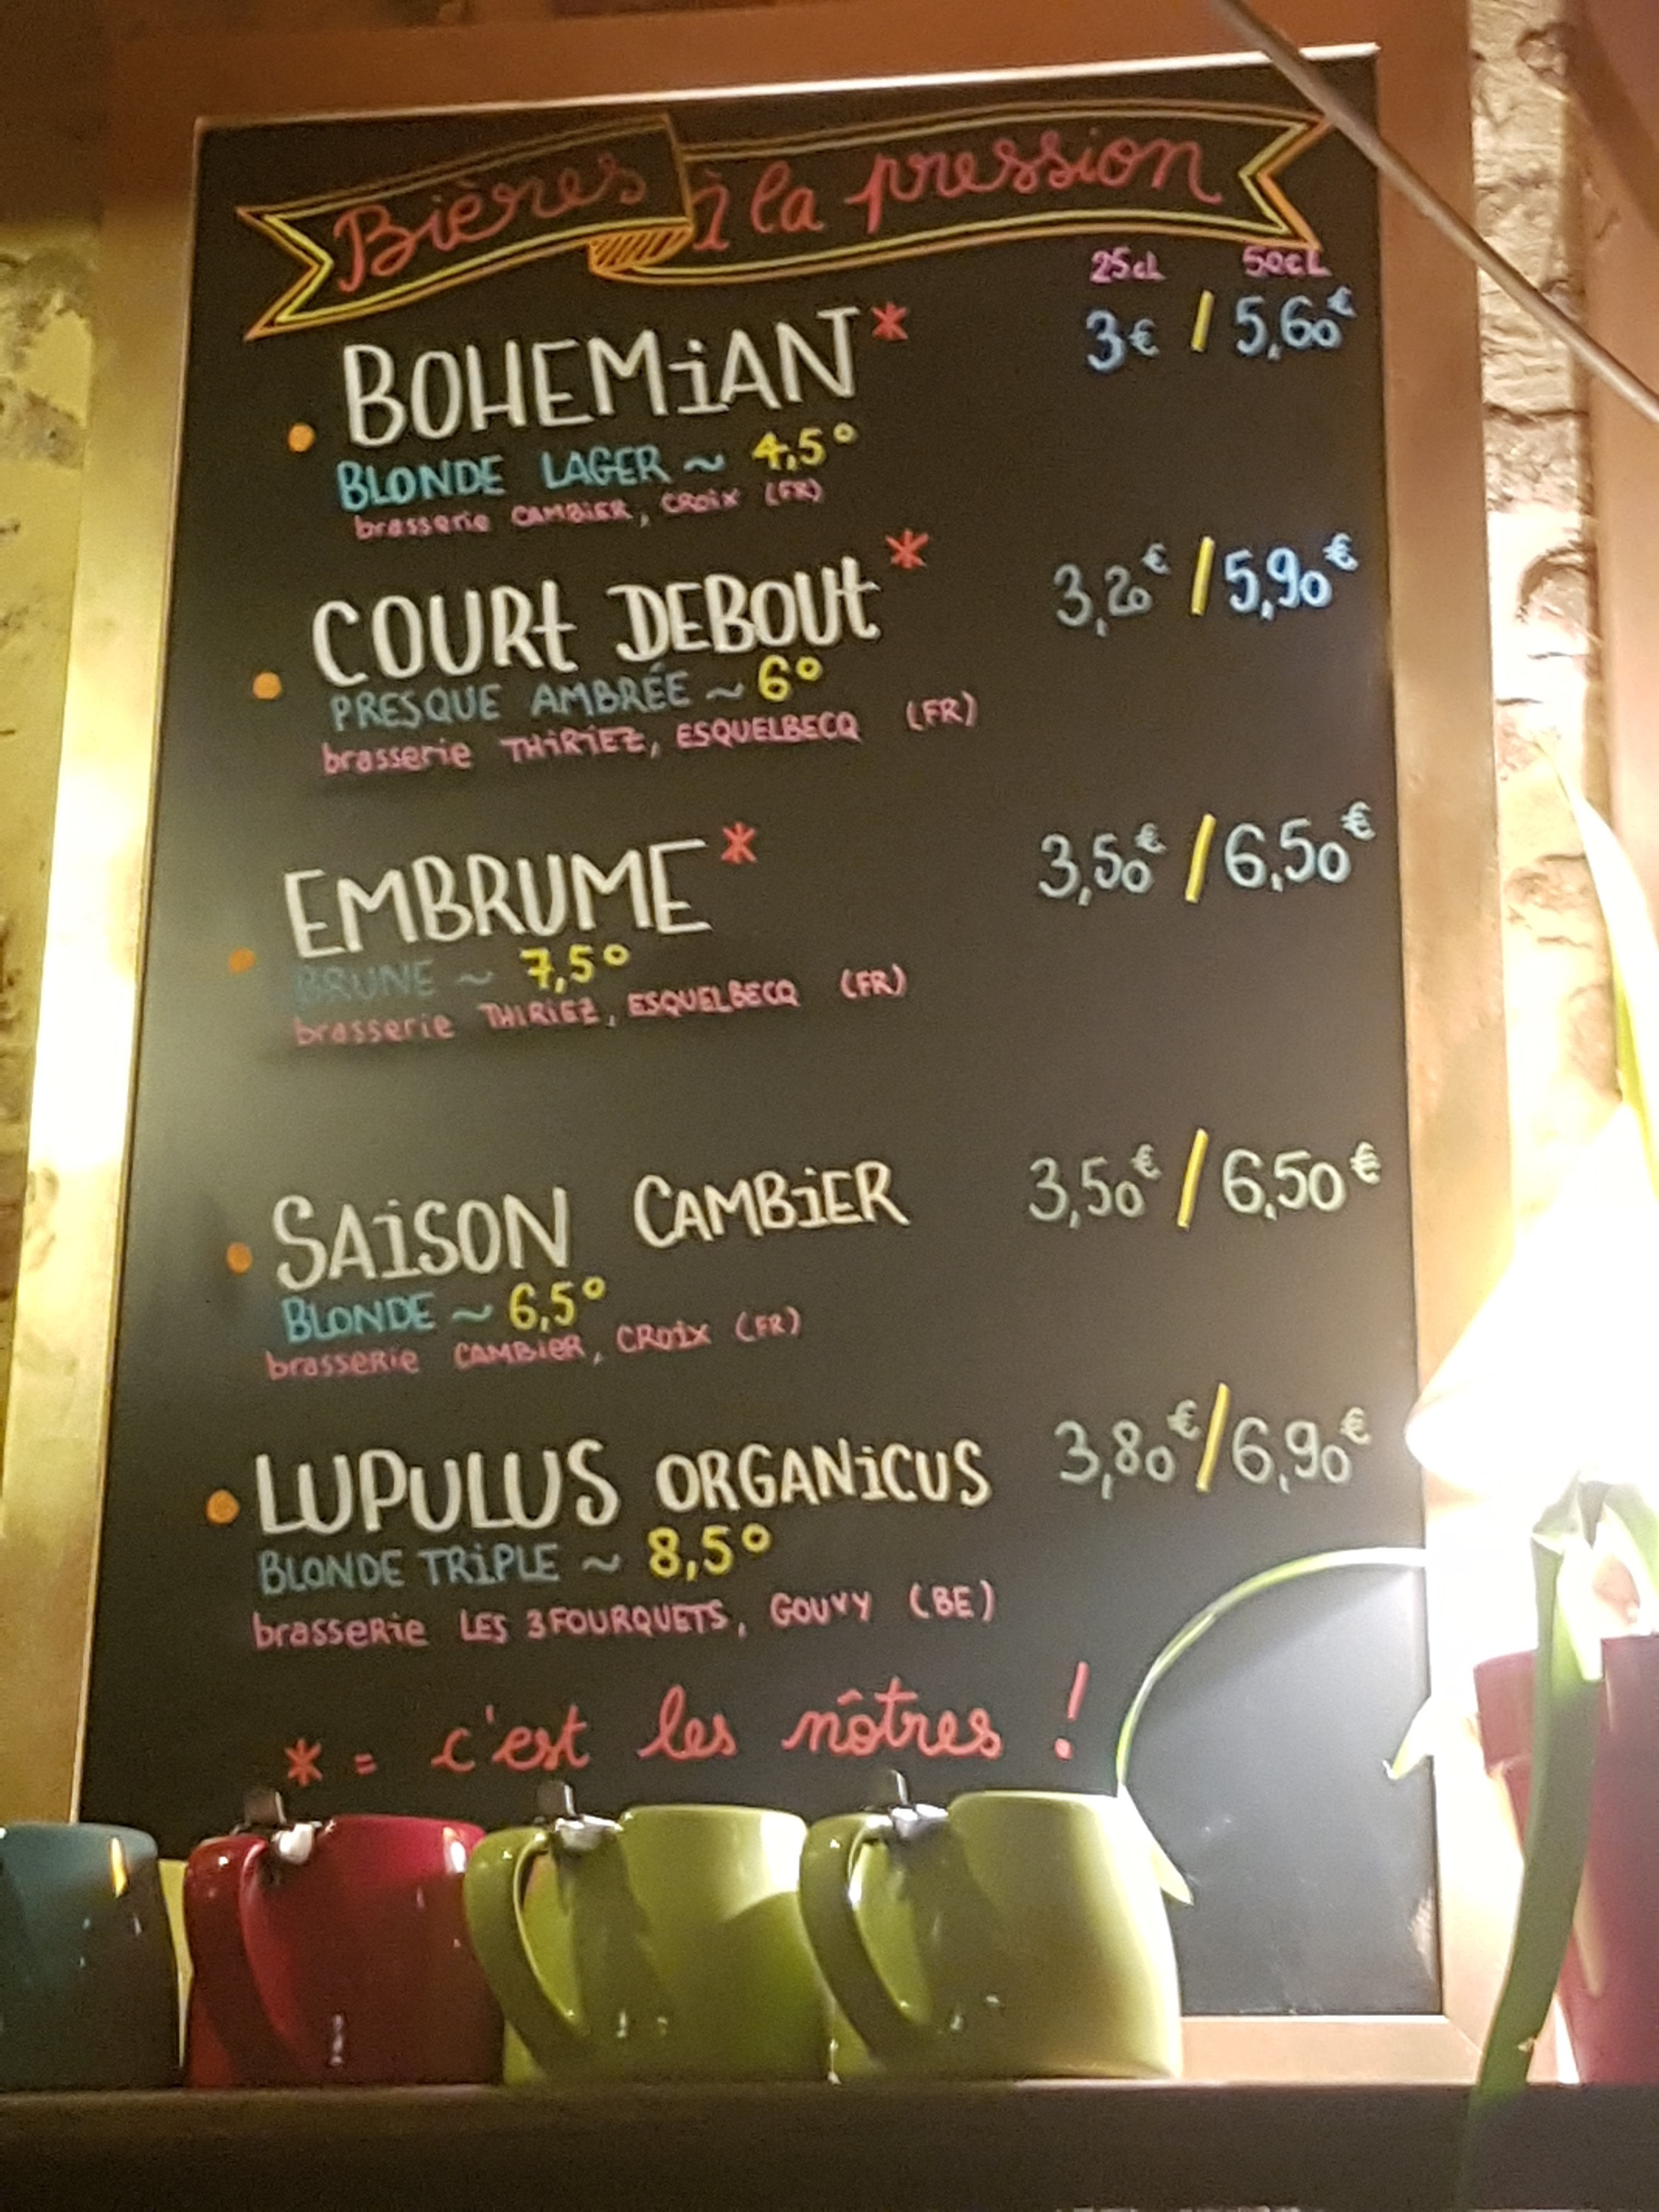 Bières à la pression
25cl 50cL
BOHEMiAN* 3€ / 5,60€
BLONDE LAGER ~ 4,5°
brasserie CAMBiER, CROiX (FR)
COURt DEBOUt* 3,20€ / 5,90€
PRESQUE AMBRÉE ~ 6°
brasserie THiRiEZ, ESQUELBECQ (FR)
EMBRUME* 3,50€ / 6,50€
BRUNE ~ 7,5°
brasserie THIRIEZ, ESQUELBECQ (FR)
SAiSON CAMBiER 3,50€ / 6,50€
BLONDE ~ 6,5°
brasseRie CAMBieR, CROiX (FR)
LUPULUS ORGANiCUS 3,80€ / 6,90€
BLONDE TRiPLE ~ 8,5°
brasseRie LES 3 FOURQUETS, GOUVY (BE)
* = c'est les nôtres !